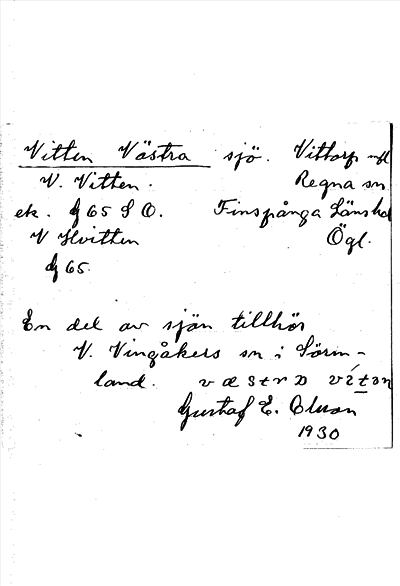 Vitten Västra sjö. Vittorp
V. Vitten. Regna sn
ek. 65 S O. Finspånga Länshd
V Hvitten Ögl.
65.
En del av sjön tillhör
V. Vingåkers sn i Sörm-
land. væstra vítən
Gustaf E. Olsson
1930